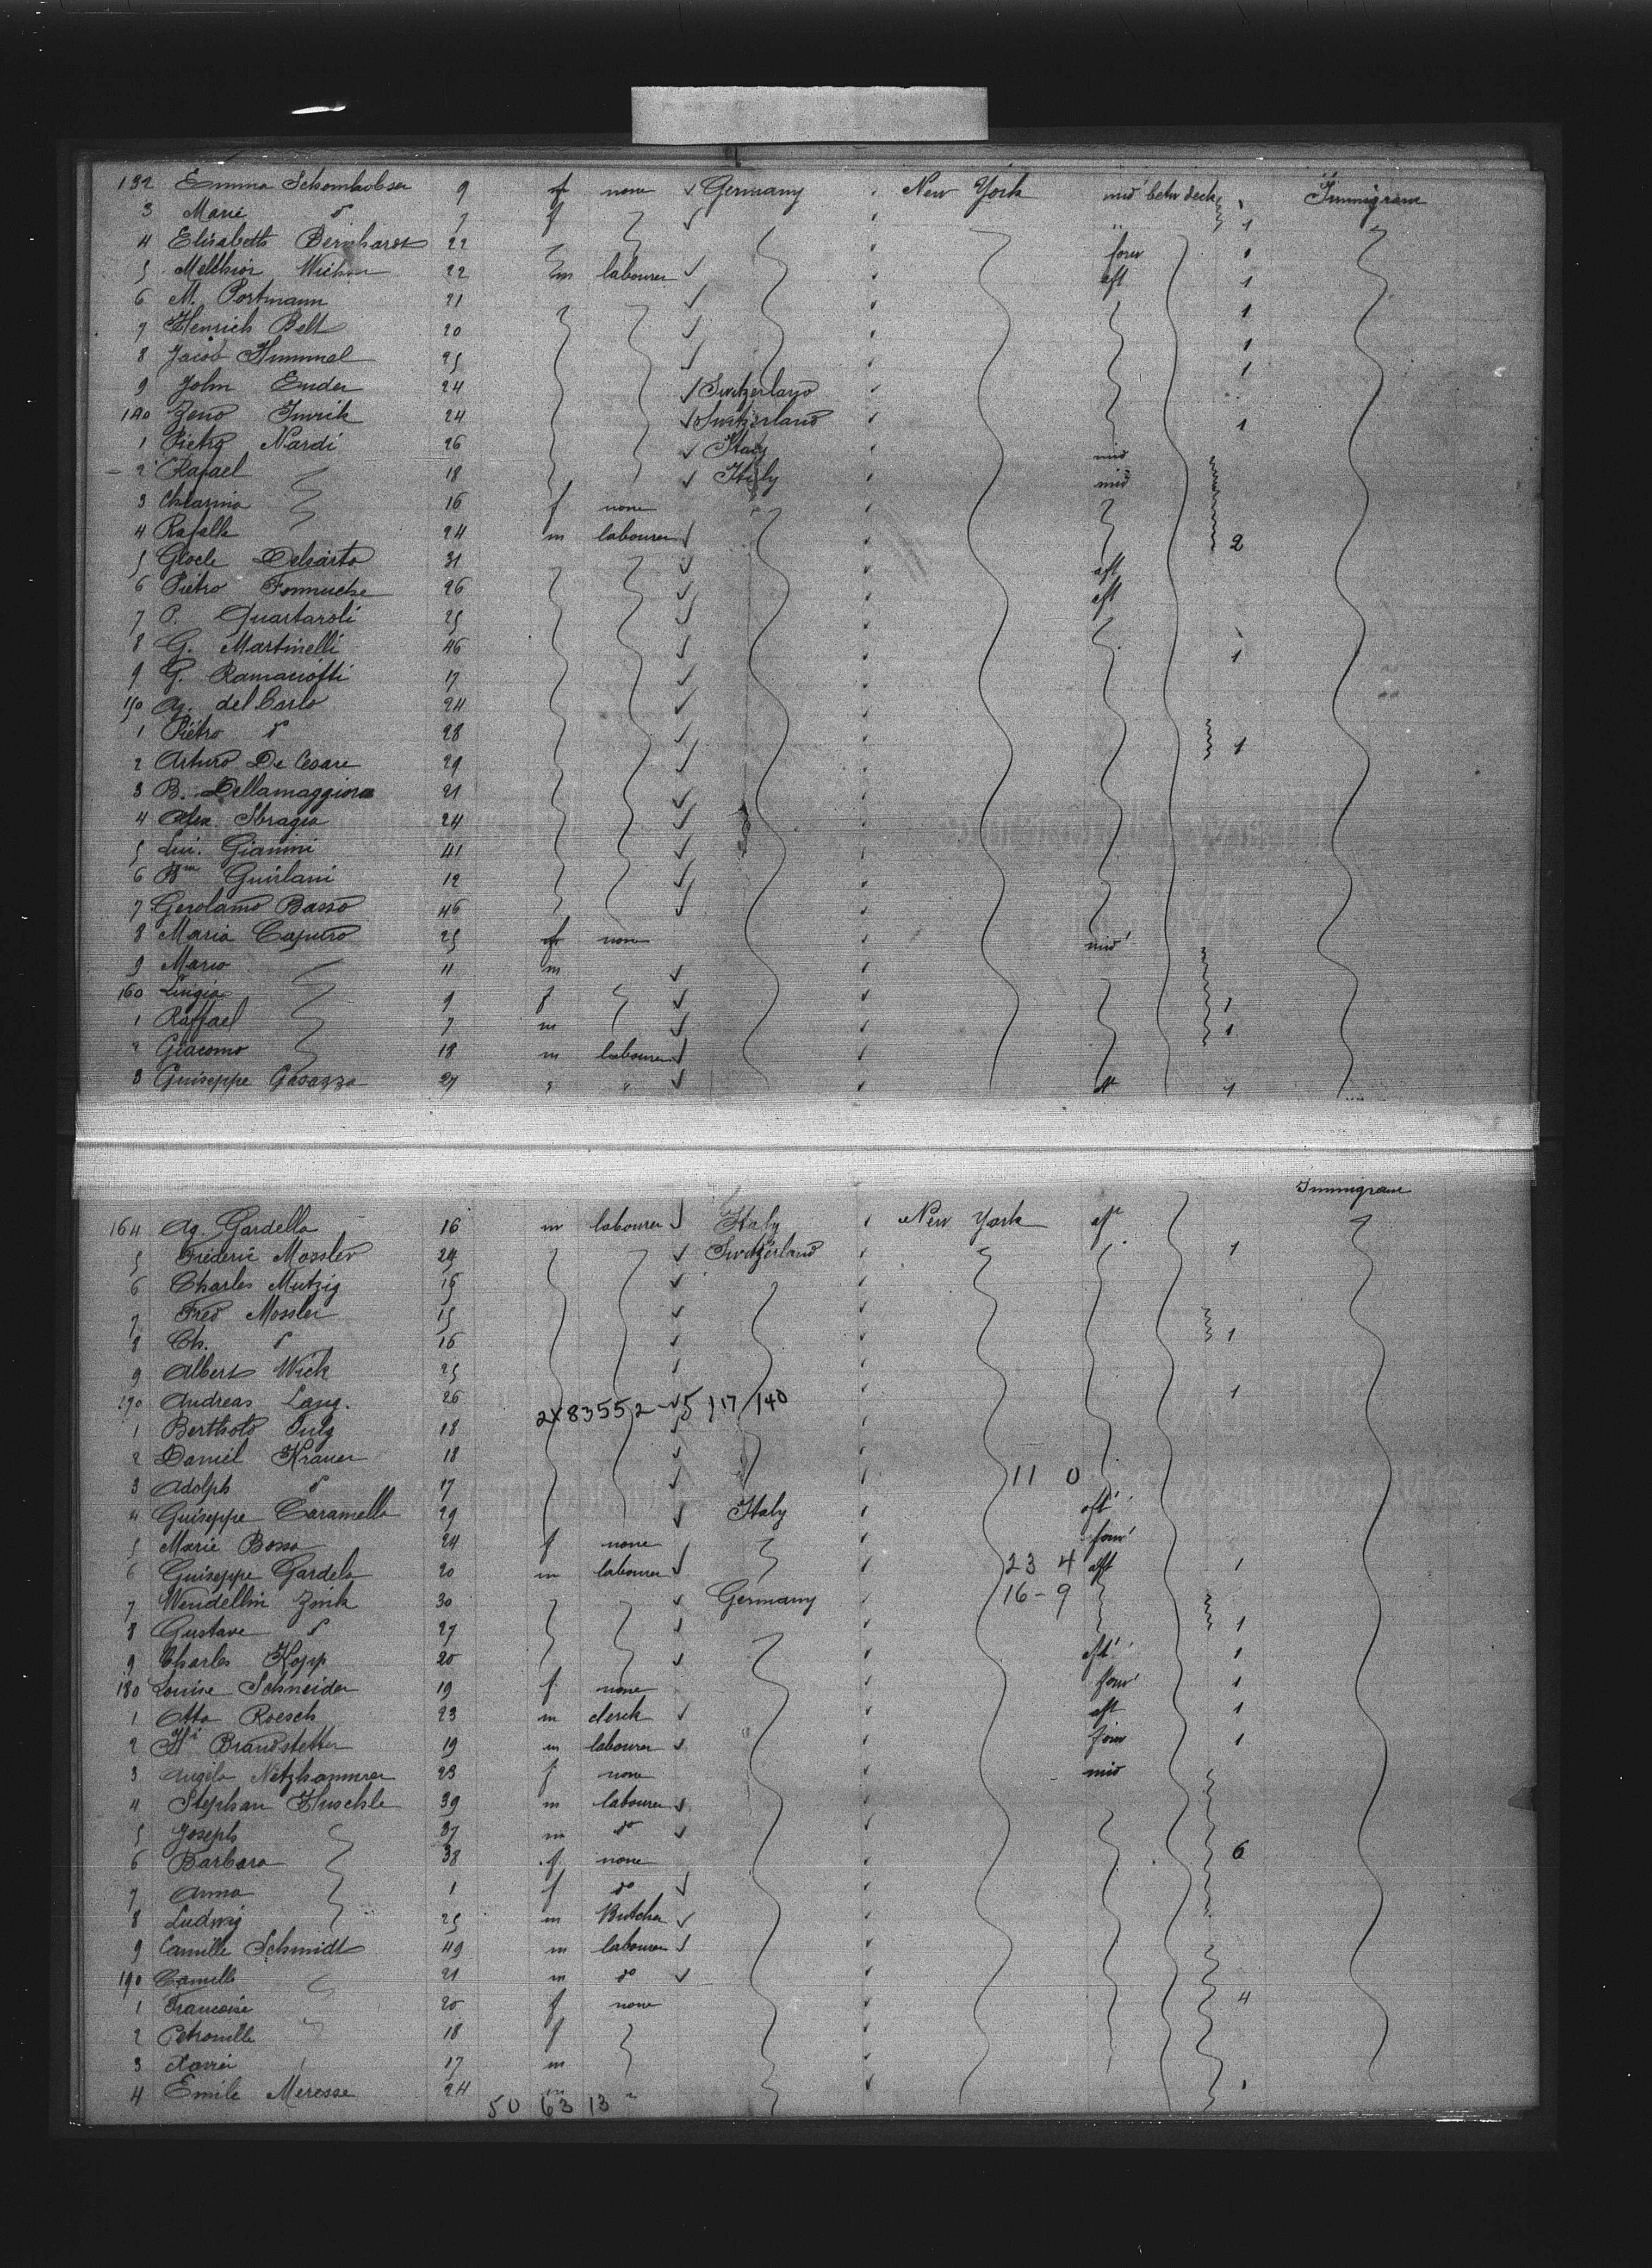 132 Emma Schomkolser 9 f none Germany New York mid betw deck Immigrant
3 Marie do 7 f 1
4 Elisabeth Bernhardt 22 forw 1
5 Melchior 22 m labourer aft 1
6 M. Portmann 21 1
7 Henrich Belt 20 1
8 Jacob Hummel 25 1
9 John Ender 24 Switzerland
140 Zeno Imrik 24 Switzerland 1
1 Pietro Nardi 26 Italy mid
2 Rafael 18 Italy mid
3 Chiarina 16 f none
4 Rafalle 24 m labourer 2
5 Giocle Delsarto 31 aft
6 Pietro 26 aft
7 P. Quartaroli 25
8 G. Martinelli 46 1
9 G. Ramaciotti 17
150 Ag. del Carlo 24
1 Pietro do 28 1
2 Arturo De Cesare 29
3 B. Dellamaggiora 21
4 Alex. Sbragia 24
5 Lui. Gianini 41
6 Guirlani 12
7 Gerolamo Basso 46
8 Maria Capuro 25 f none mid
9 Mario 11 m
160 Luigia 9 f 1
1 Raffael 7 m 1
2 Giacomo 18 m labourer
3 Guiseppe Gasazza 27 " " aft 1
Immigrant
164 Ag. Gardella 16 m labourer Italy New York aft
5 Frederic Mossler 24 Switzerland 1
6 Charles Mutzig 15
7 Fred Mossler 15
8 Ch. do 16 1
9 Albert Wick 25
170 Andreas Lang. 26 1
2X83552-5/17/40
1 Berthold Sulz 18
2 Daniel Krauer 18
3 Adolph do 17 11 0
4 Guiseppe Caramella 29 Italy aft
5 Marie Bosso 24 f none forw
6 Guiseppe Gardela 20 m labourer 23 4 aft 1
7 Wendellin Zink 30 Germany 16-9
8 Gustave do 27 1
9 Charles Kopp 20 aft 1
180 Louise Schneider 19 f none forw 1
1 Otto Roesch 23 m clerck aft 1
2 Brandstetter 19 m labourer forw 1
3 Angela Netzhammer 23 f none mid
4 Stephan Huschle 39 m labourer
5 Joseph 37 m do
6 Barbara 38 f none 6
7 Anna 1 f do
8 Ludwig 25 m Butcher
9 Camille Schmidt 49 m labourer
190 Camille 21 m do
1 Francoise 20 f none 4
2 Petronille 18 f
3 Xavier 17 m
4 Emile Meresse 24 m " 1
50 63 13